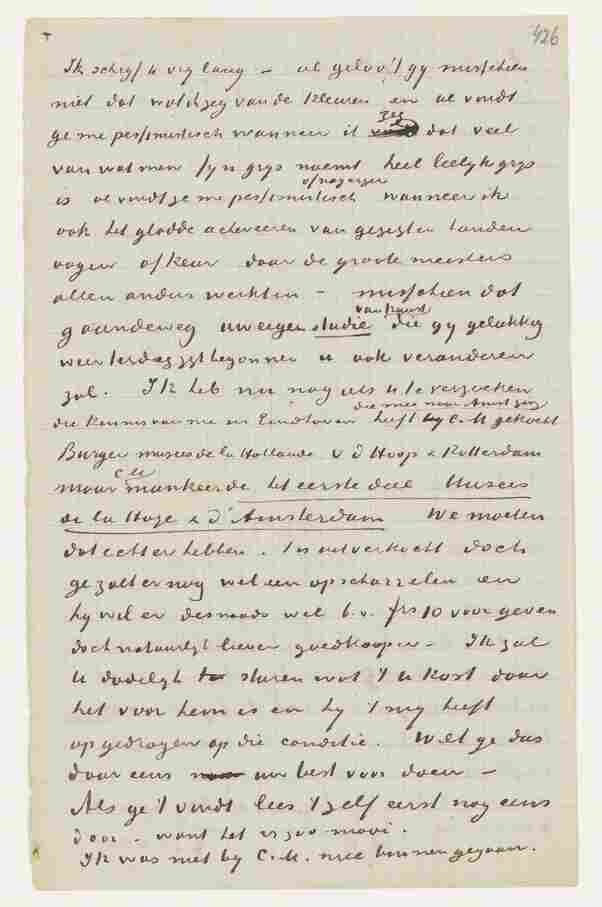 426
Ik schryf u vry lang – al geloo't gy misschien
niet dat wat ik zeg van de kleuren en al vondt
ge me pessimistisch wanneer ik zeg dat veel
van wat men fyn grys noemt heel leelyk grys
is al vondt ge me pessimistisch of nog erger wanneer ik
ook het gladde acheveeren van gezigten handen
oogen afkeur daar de groote meesters
allen anders werkten – misschien dat
gaandeweg uw eigen studie van kunst die gy gelukkig
weer terdeeg zyt begonnen u ook veranderen
zal. Ik heb nu nog iets u te verzoeken
die kennis van me in Eindhoven die mee naar Amst ging heeft by C.M gekocht
Burger musées de la Hollande v d Hoop & Rotterdam
maar C.M. mankeerde het eerste deel Musées
de la Haye & d'Amsterdam We moeten
dat echter hebben. 't is uitverkocht doch
ge zalt er nog wel een opscharrelen en
hy wil er desnoods wel b.v. frs 10 voor geven
doch natuurlyk liever goedkooper – Ik zal
U dadelyk sturen wat 't u kost daar
het voor hem is en hy 't my heeft
opgedragen op die conditie. Wilt ge dus
daar eens uw best voor doen –
Als ge 't vindt lees 't zelf eerst nog eens
door – want het is zoo mooi.
Ik was niet by C.M. mee binnen gegaan.